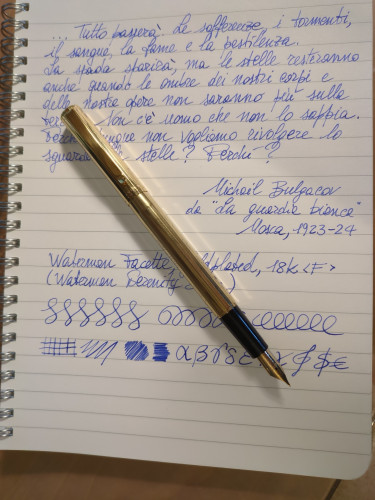 ... Tutto passerà. Le sofferenze, i tormenti,
il sangue, la fame e la pestilenza.
La spada sparirà, ma le stelle resteranno
anche quando le ombre dei nostri corpi e
delle nostre opere non saranno più sulla
Non c'è uomo che non lo sappia.
non vogliamo rivolgere lo
sguardo stelle? Perché?
Michail Bulgacov
da "La guardia bianca"
Mosca, 1923-24
Waterman Facette 18k <F>
(Waterman Serenity )
α β γ δ ε $ €